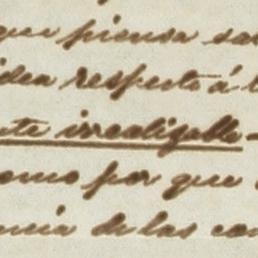 que piensa sa
idea respecto á l
nte irrealizable
como por que
ncia de las con